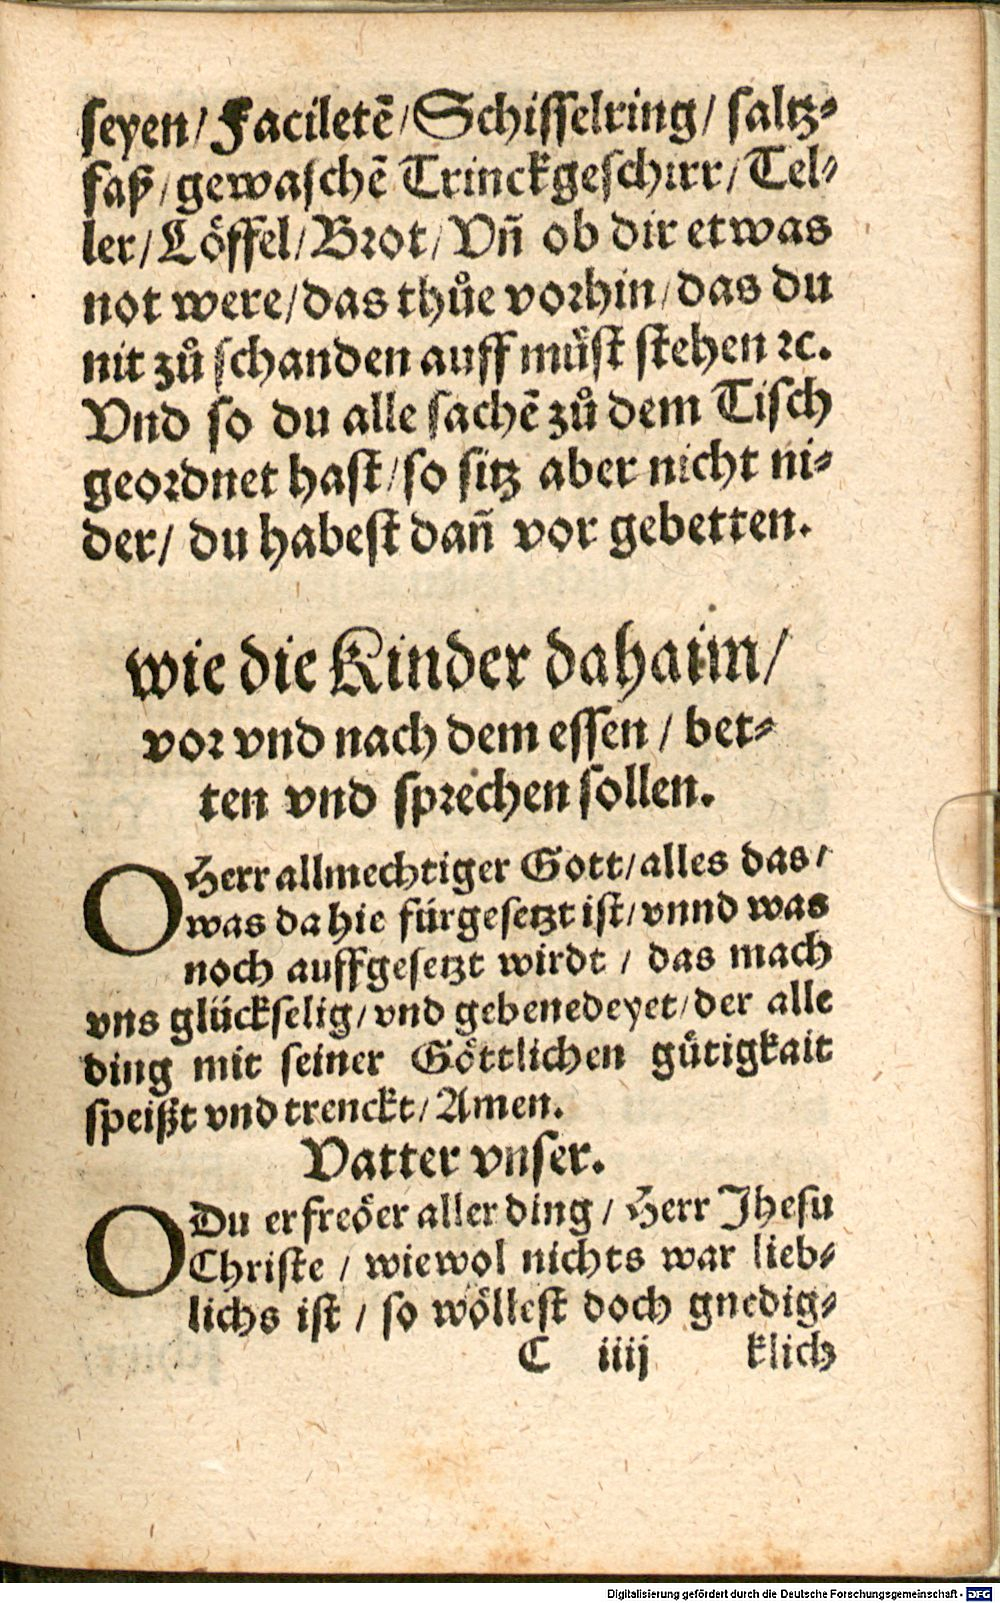 seyen / Faciletẽ / Schisselring / saltz⸗
faß / gewaschẽ Trinckgeschirr / Tel⸗
ler / Löffel / Brot / Vñ ob dir etwas
not were / das thůe vorhin / das du
nit zů schanden auff müst stehen ꝛc.
Vnd so du alle sachẽ zů dem Tisch
geordnet hast / so sitz aber nicht ni⸗
der / du habest dañ vor gebetten.
wie die Kinder dahaim /
vor vnd nach dem essen / bet⸗
ten vnd sprechen sollen.
O Herr allmechtiger Gott / alles das /
was da hie fürgesetzt ist / vnnd was
noch auffgesetzt wirdt / das mach
vns glückselig / vnd gebenedeyet / der alle
ding mit seiner Göttlichen gütigkait
speißt vnd trenckt / Amen.
Vatter vnser.
O Du erfreöer aller ding / Herr Jhesu
Christe / wiewol nichts war lieb⸗
lichs ist / so wöllest doch gnedig⸗
C iiij klich
Digitalisierung gefördert durch die Deutsche Forschungsgemeinschaft - DFG